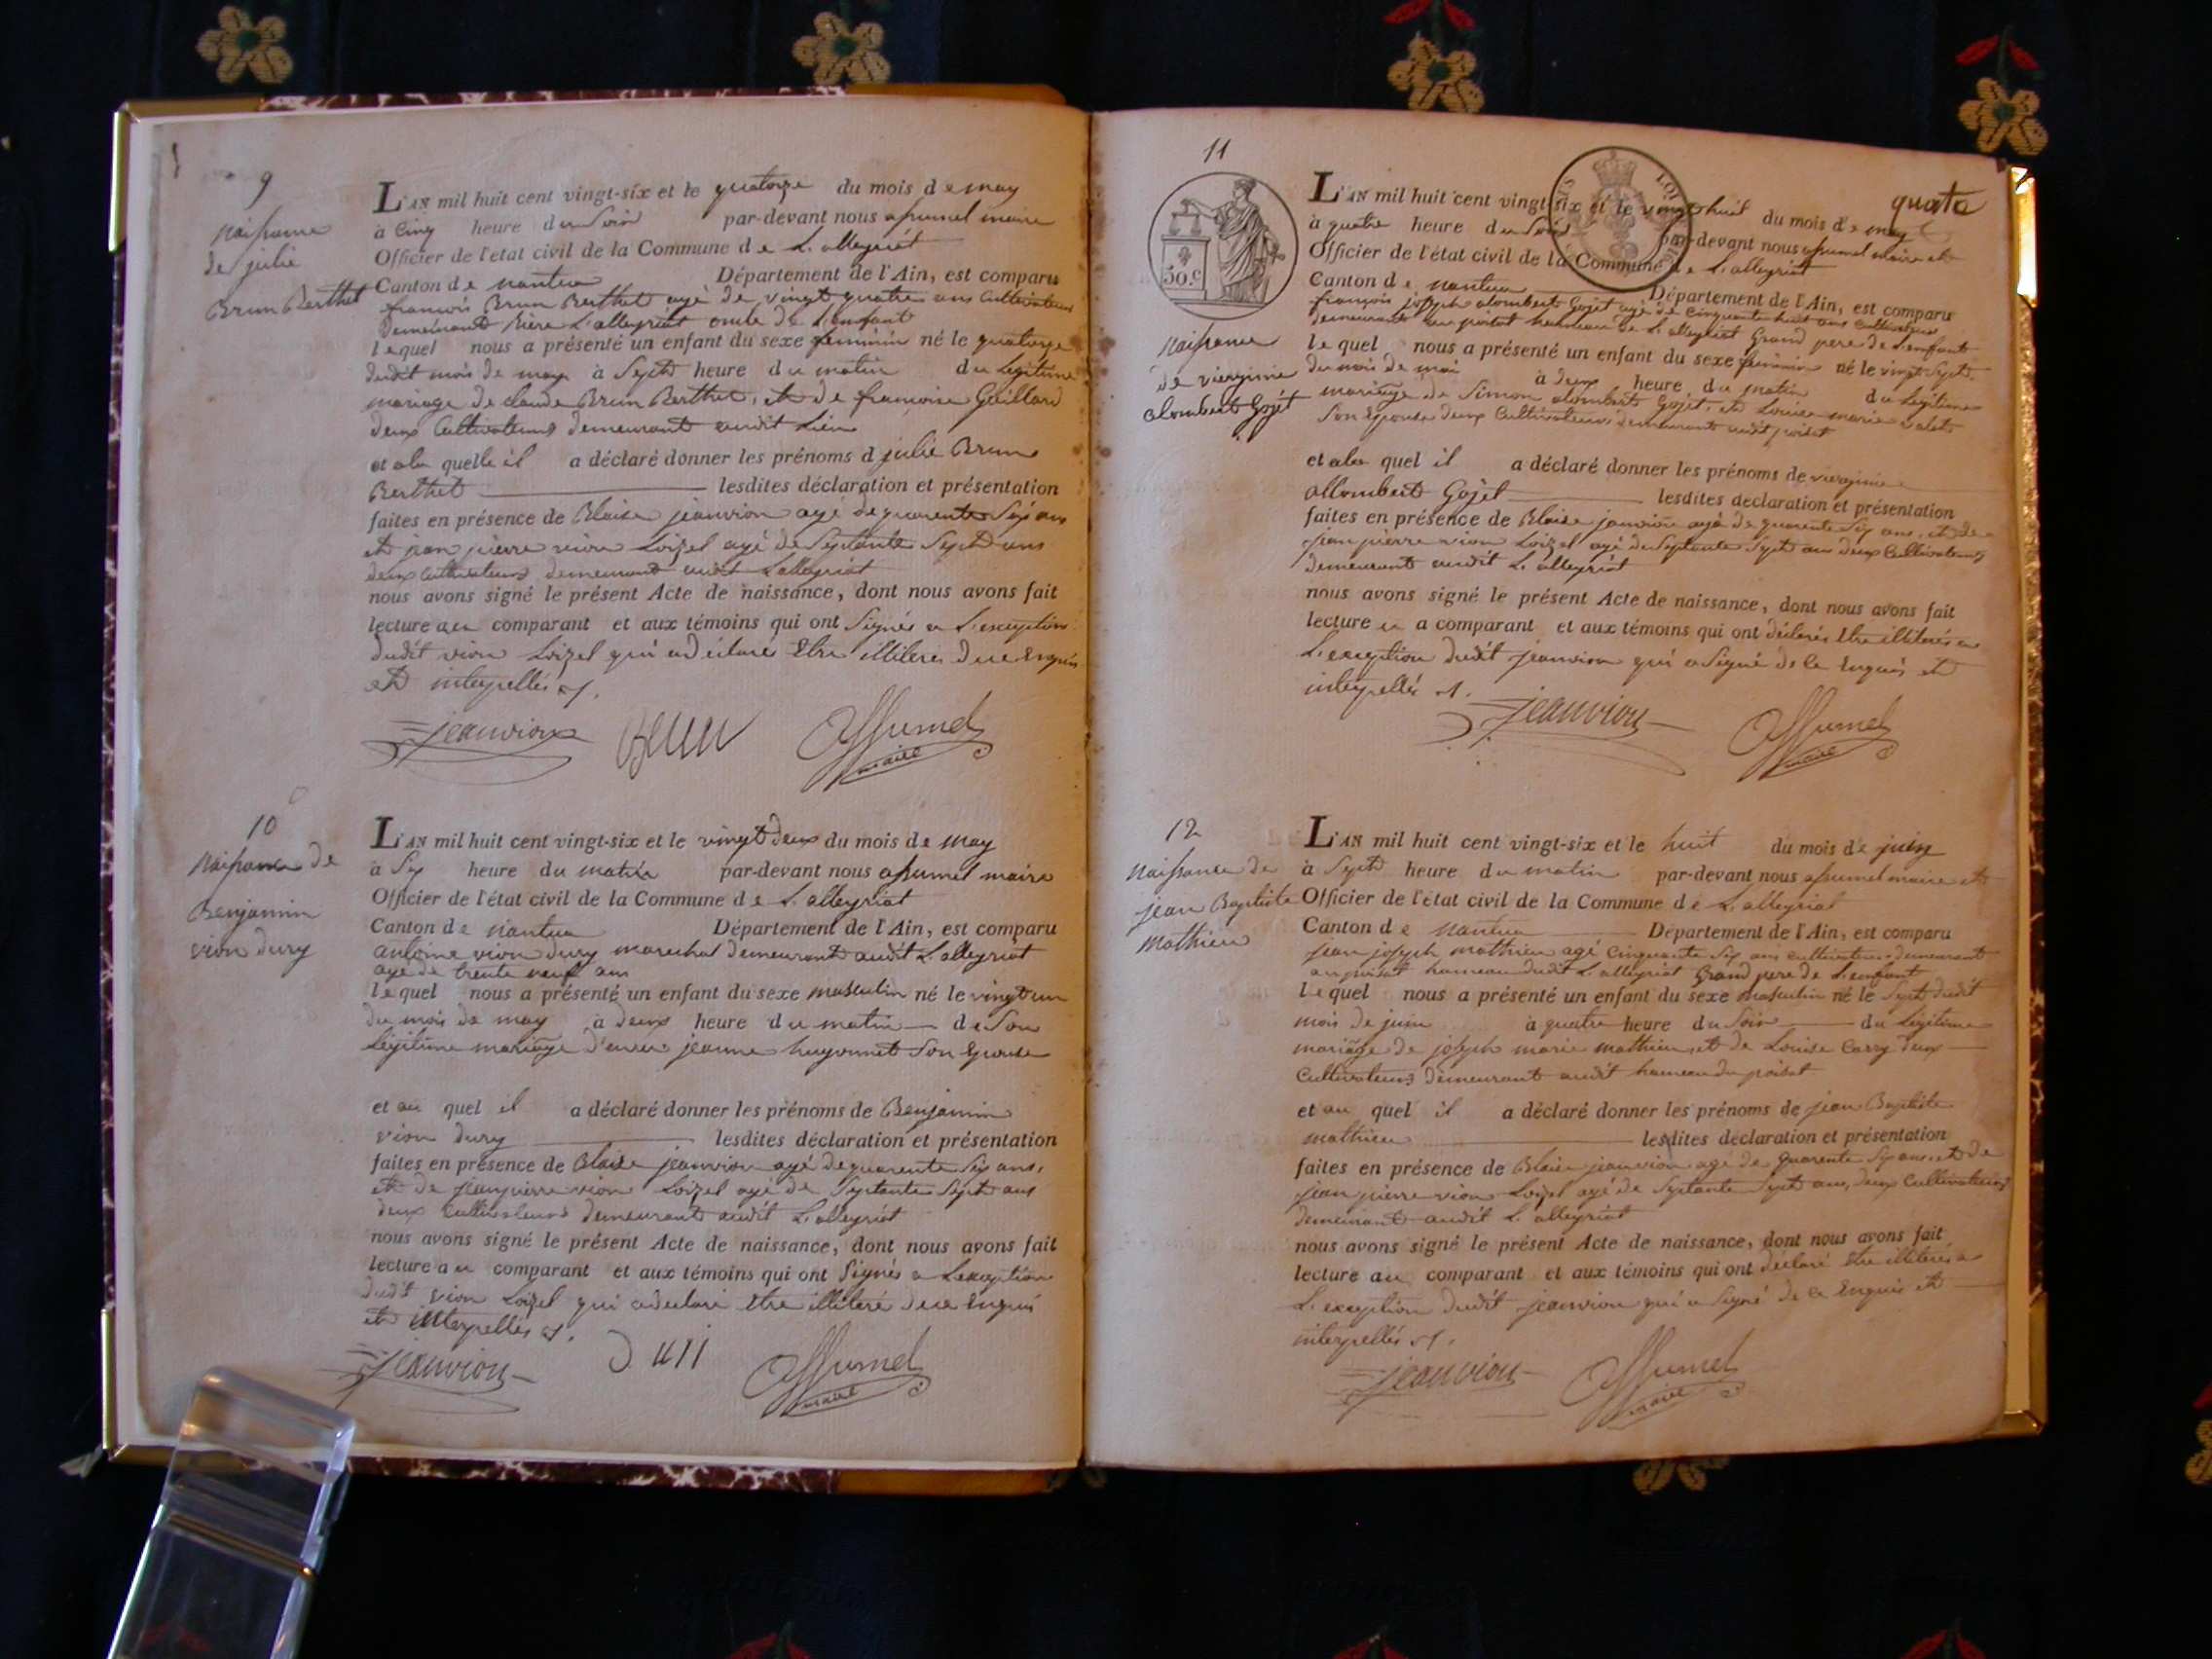 9
naissance
de julie
Brun Berthet
L'AN mil huit cent vingt-six et le quatorze du mois de may
à Cinq heure du Soir par-devant nous assumel maire
Officier de l'état civil de la Commune de L'alleyriat
Canton de nantua Département de l'Ain, est comparu
francois Brun Berthet agé de vingt quatre ans Cultivateur
demeurant L'alleyriat oncle de L'enfant
lequel nous a présenté un enfant du sexe feminin né le quatorze
dudit mois de may à Sept heure du matin du Légitime
mariage de claude Brun Berthet, et de francoise Guillard
deux Cultivateurs demeurant audit Lieu
et a la quelle il a déclaré donner les prénoms d julie Brun
Berthet lesdites déclaration et présentation
faites en présence de Blaise jeanvion agé de quarente Six ans
et jean pierre vion Loizel agé de Septante Sept ans
deux Cultivateurs demeurant audit L'alleyriat
nous avons signé le présent Acte de naissance, dont nous avons fait
lecture au comparant et aux témoins qui ont Signés a L'exception
dudit vion Loizel qui a déclaré Etre illiteré de ce Enquis
et interpellés
jeanvion Brun Assumel
maire
10
naissance de
Benjamin
vion dury
L'AN mil huit cent vingt-six et le vingt deux du mois de may
à Six heure du matin par-devant nous assumel maire
Officier de l'état civil de la Commune de L'alleyriat
Canton de nantua Département de l'Ain, est comparu
antoine vion dury marechal demeurant audit L'alleyriat
agé de trente neuf ans
lequel nous a présenté un enfant du sexe masculin né le vingt un
du mois de may à deux heure du matin de Son
Légitime mariage jeanne huyonnet Son Epouse
et au quel il a déclaré donner les prénoms de Benjamin
vion dury lesdites déclaration et présentation
faites en présence de Blaise jeanvion agé de quarente Six ans,
et de jean pierre vion Loizel agé de Septante Sept ans
deux Cultivateurs demeurant audit L'alleyriat
nous avons signé le présent Acte de naissance, dont nous avons fait
lecture au comparant et aux témoins qui ont Signés a L'exception
dudit vion Loizel qui a declaré Etre illiteré de ce Enquis
et interpellés
jeanvion Assumel
maire
11
quatre
50 c
naissance
de vierginie
alombert Gojet
L'AN mil huit cent vingt-six et le vingt huit du mois de may
à quatre heure du Soir par-devant nous assumel maire et
Officier de l'état civil de la Commune de L'alleyriat
Canton de nantua Département de l'Ain, est comparu
françois joseph alombert Gojet agé de Cinquante huit ans cultivateur
demeurant au poizat hameau de L'alleyriat Grand pere de L'enfant
lequel nous a présenté un enfant du sexe feminin né le vingt Sept
du mois de mai à deux heure du matin du Légitime
mariage de Simon alombert Gojet, et Louise marie
Son Epouse deux Cultivateurs demeurant audit poizat
et a la quel il a déclaré donner les prénoms de vierginie
allombert Gojet lesdites déclaration et présentation
faites en présence de Blaise jeanvion agé de quarente Six ans, et de
jean pierre vion Loizel agé de Septante Sept ans deux Cultivateurs
demeurant audit L'alleyriat
nous avons signé le présent Acte de naissance, dont nous avons fait
lecture a comparant et aux témoins qui ont déclarés Etre illiterés a
L'exception dudit jeanvion qui a Signé de ce Enquis et
interpellé
jeanvion Assumel
maire
12
naissance de
jean Baptiste
mathieu
L'AN mil huit cent vingt-six et le huit du mois de juin
à Sept heure du matin par-devant nous assumel maire et
Officier de l'état civil de la Commune de L'alleyriat
Canton de nantua Département de l'Ain, est comparu
jean joseph mathieu agé Cinquante Six ans cultivateur demeurant
au poizat hameau dudit L'alleyriat Grand pere de L'enfant
lequel nous a présenté un enfant du sexe masculin né le Sept dudit
mois de juin à quatre heure du Soir du Légitime
mariage de joseph marie mathieu, et de Louise Carry deux
Cultivateurs demeurant audit hameau du poizat
et au quel il a déclaré donner les prénoms de jean Baptiste
mathieu lesdites déclaration et présentation
faites en présence de Blaise jeanvion agé de quarente Six ans et de
jean pierre vion Loizel agé de Septante Sept ans, deux Cultivateurs
demeurant audit L'alleyriat
nous avons signé le présent Acte de naissance, dont nous avons fait
lecture au comparant et aux témoins qui ont déclaré Etre illiterés a
L'exception dudit jeanvion qui a Signé de ce Enquis et
interpellés
jeanvion Assumel
maire